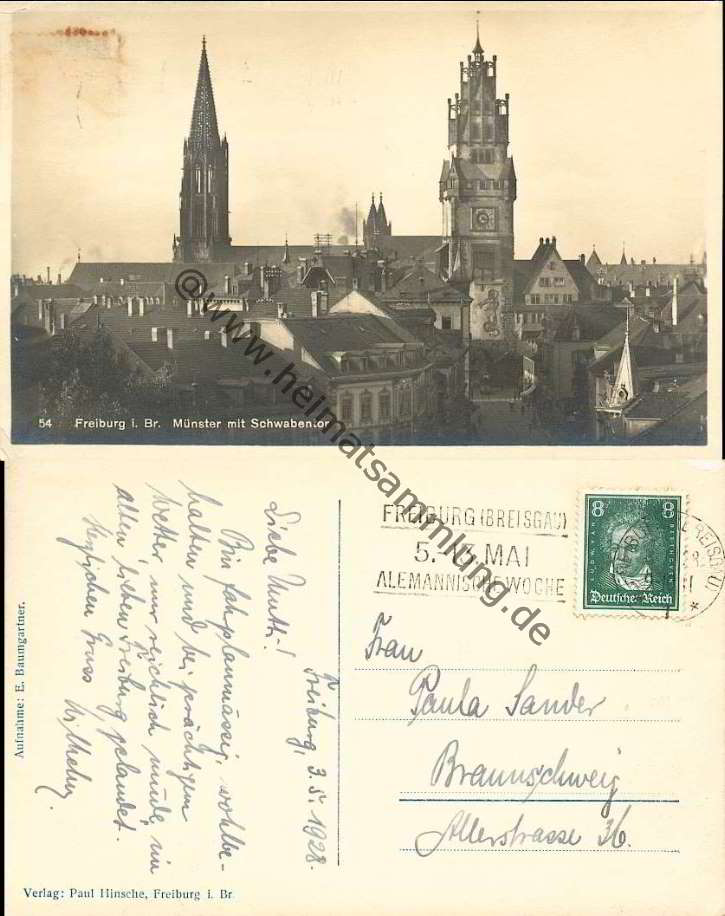 54 Freiburg i. Br. Münster mit Schwabentor
@www.heimatsammlung.de
FREIBURG (BREISGAU)
5.-13. MAI
ALEMANNISCHE WOCHE
8 8
LUDWIG VAN BEETHOVEN
Deutsches Reich
Freiburg, 3.5.1928.
Liebe Mutti!
Bin fahrplanmässig, wohlbe-
halten und bei prächtigem
Wetter, nur reichlich müde, im
alten lieben Freiburg gelandet.
Herzlichen Gruss Wilhelm.
Frau
Paula Sander
Braunschweig
Allerstrasse 36.
Aufnahme: E. Baumgartner.
Verlag: Paul Hinsche, Freiburg i. Br.